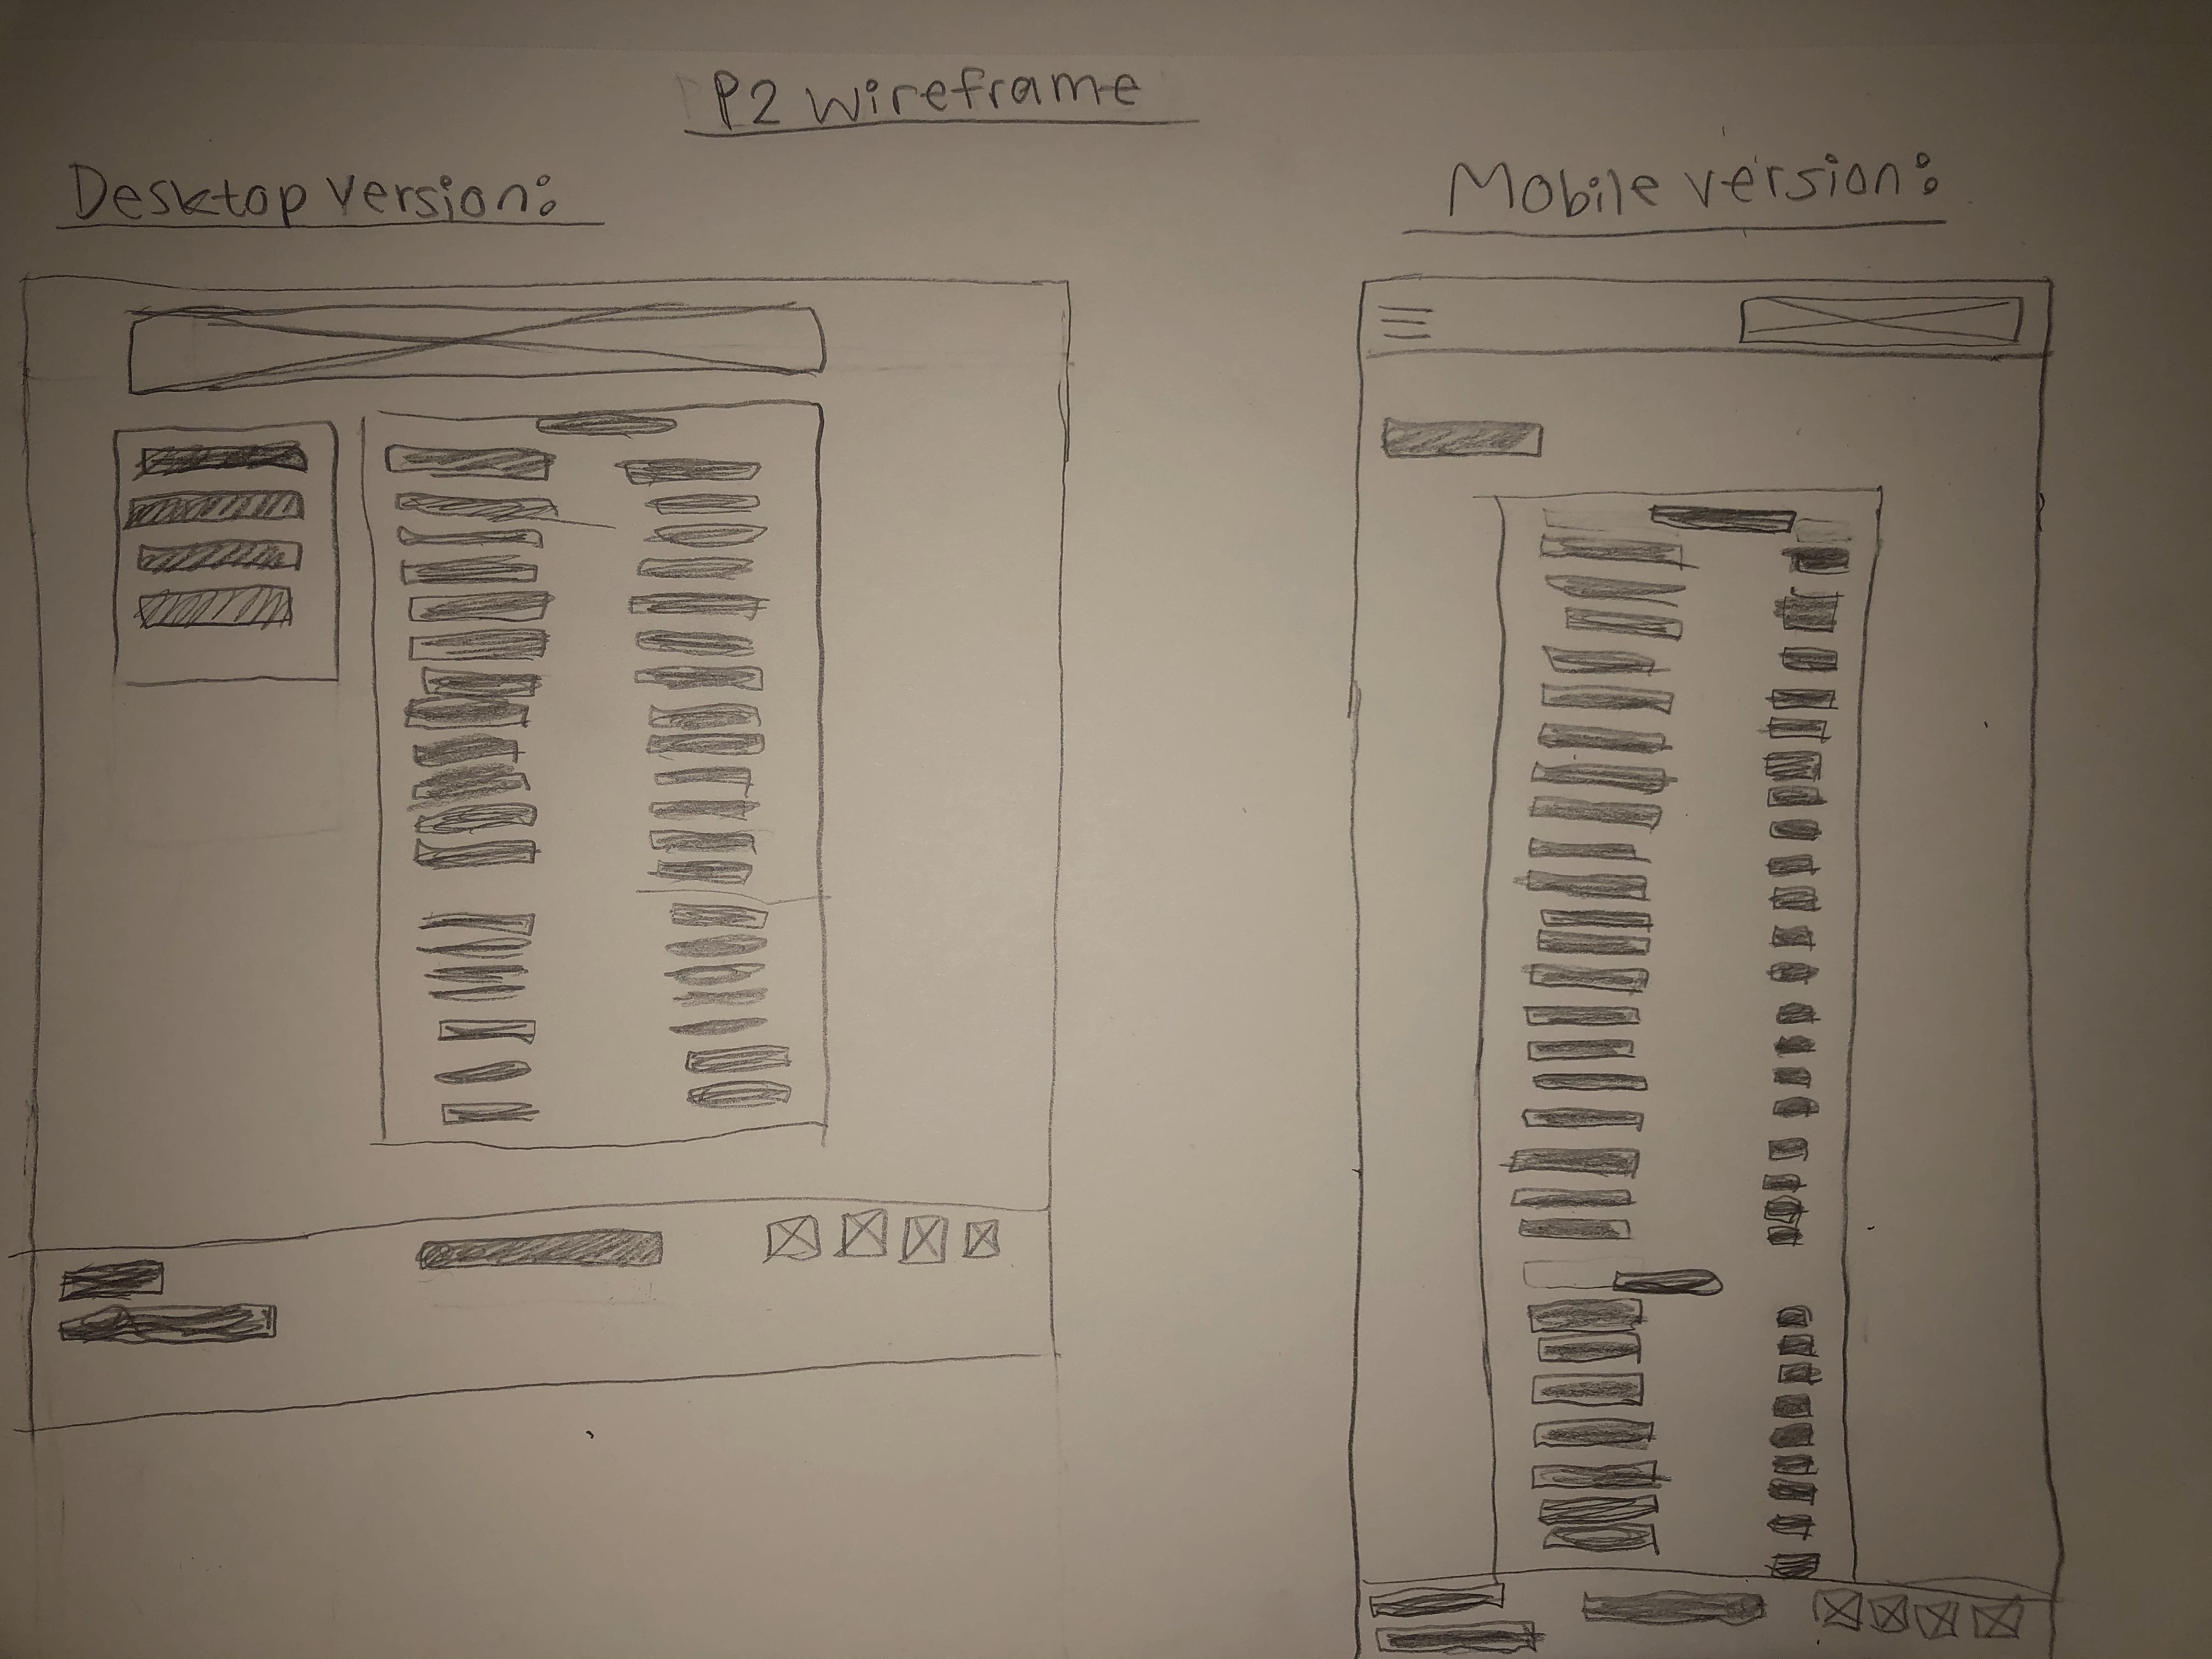 P2 wireframe
Desktop version:
Mobile version: